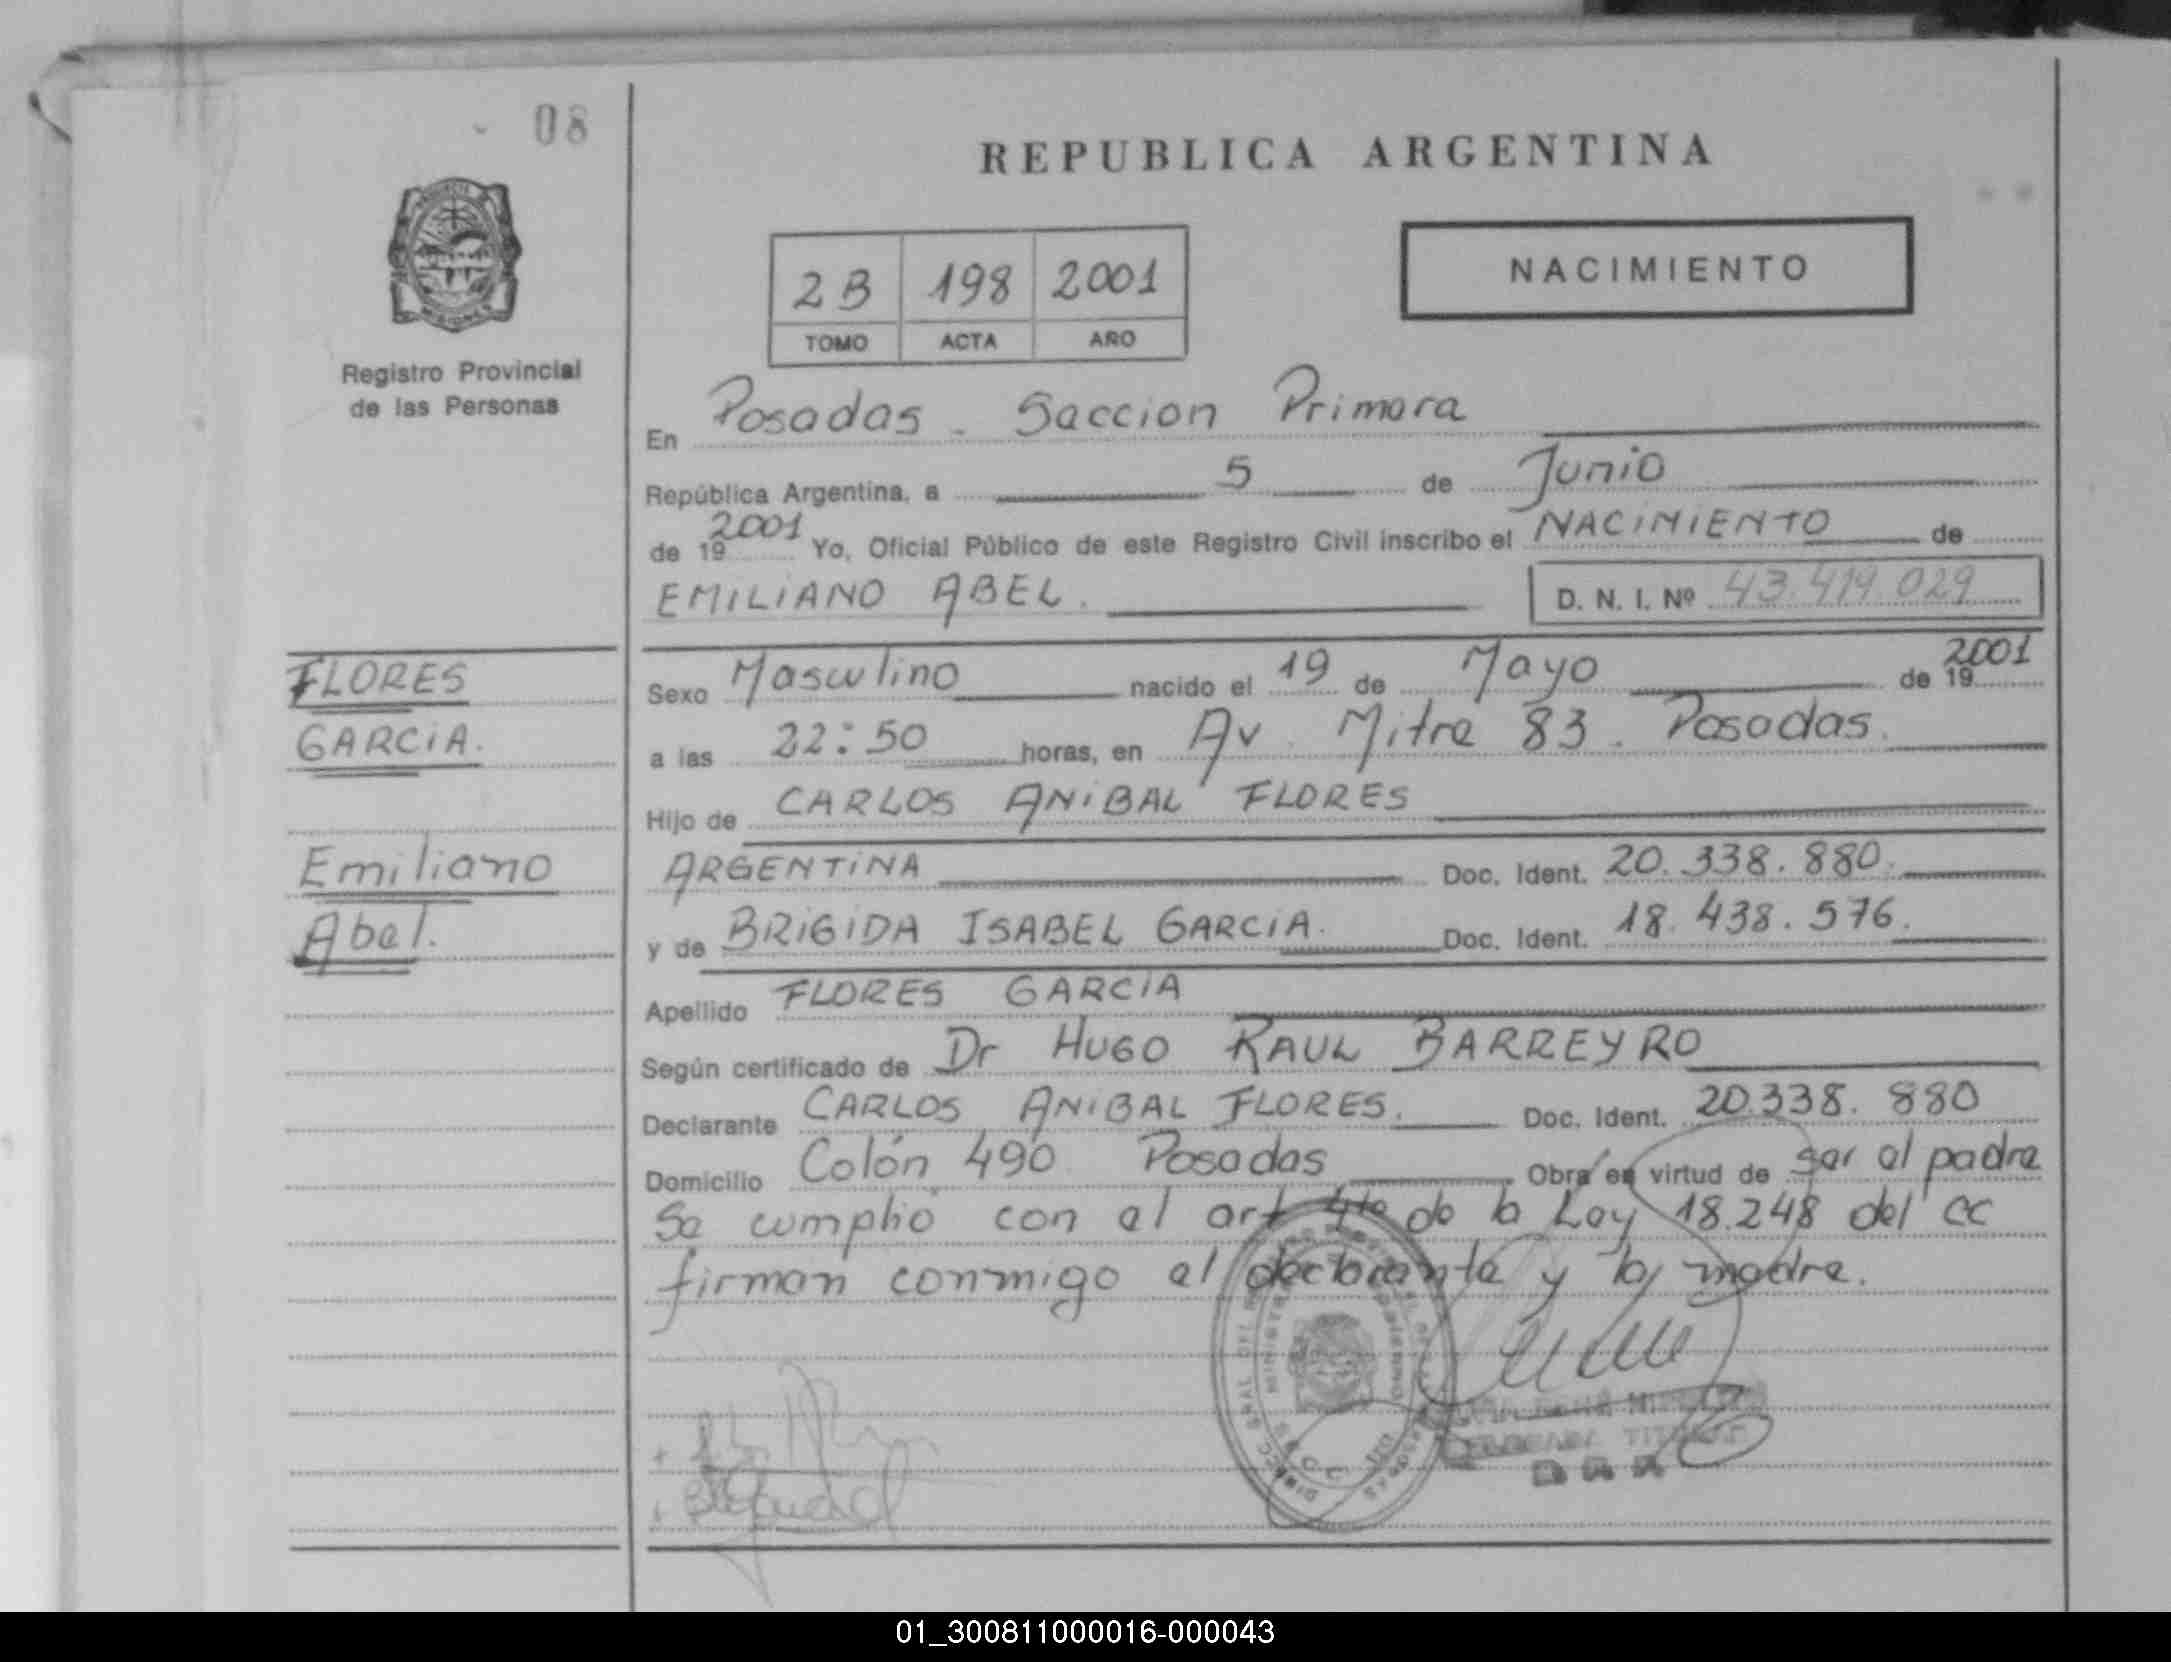 08
REPUBLICA ARGENTINA
2B 198 2001
TOMO ACTA AÑO
NACIMIENTO
Registro Provincial
de las Personas
En Posadas - Seccion Primera
República Argentina, a 5 de Junio
de 19 2001 Yo, Oficial Público de este Registro Civil inscribo el NACIMIENTO de
EMILIANO ABEL. D. N. I. Nº 43.419.029
FLORES
GARCIA.
Emiliano
Abel.
Sexo Masculino nacido el 19 de Mayo de 19 2001
a las 22:50 horas, en Av. Mitre 83. Posadas.
Hijo de CARLOS ANIBAL FLORES
ARGENTINA Doc. Ident. 20.338.880.
y de BRIGIDA ISABEL GARCIA. Doc. Ident. 18.438.576.
Apellido FLORES GARCIA
Según certificado de Dr HUGO RAUL BARREYRO
Declarante CARLOS ANIBAL FLORES. Doc. Ident. 20.338.880
Domicilio Colón 490 Posadas Obra en virtud de ser el padre
Se cumplió con el art 4to de la Ley 18.248 del CC
firman conmigo el declarante y la madre.
01_300811000016-000043